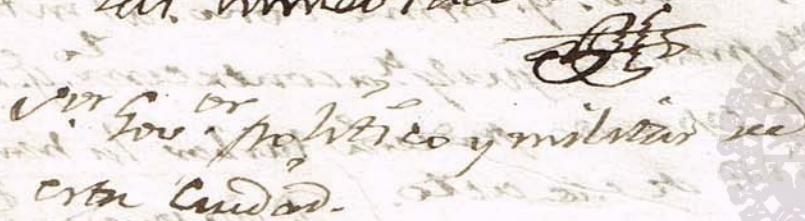 S.or Gov.or politico y militar de
esta Ciudad.